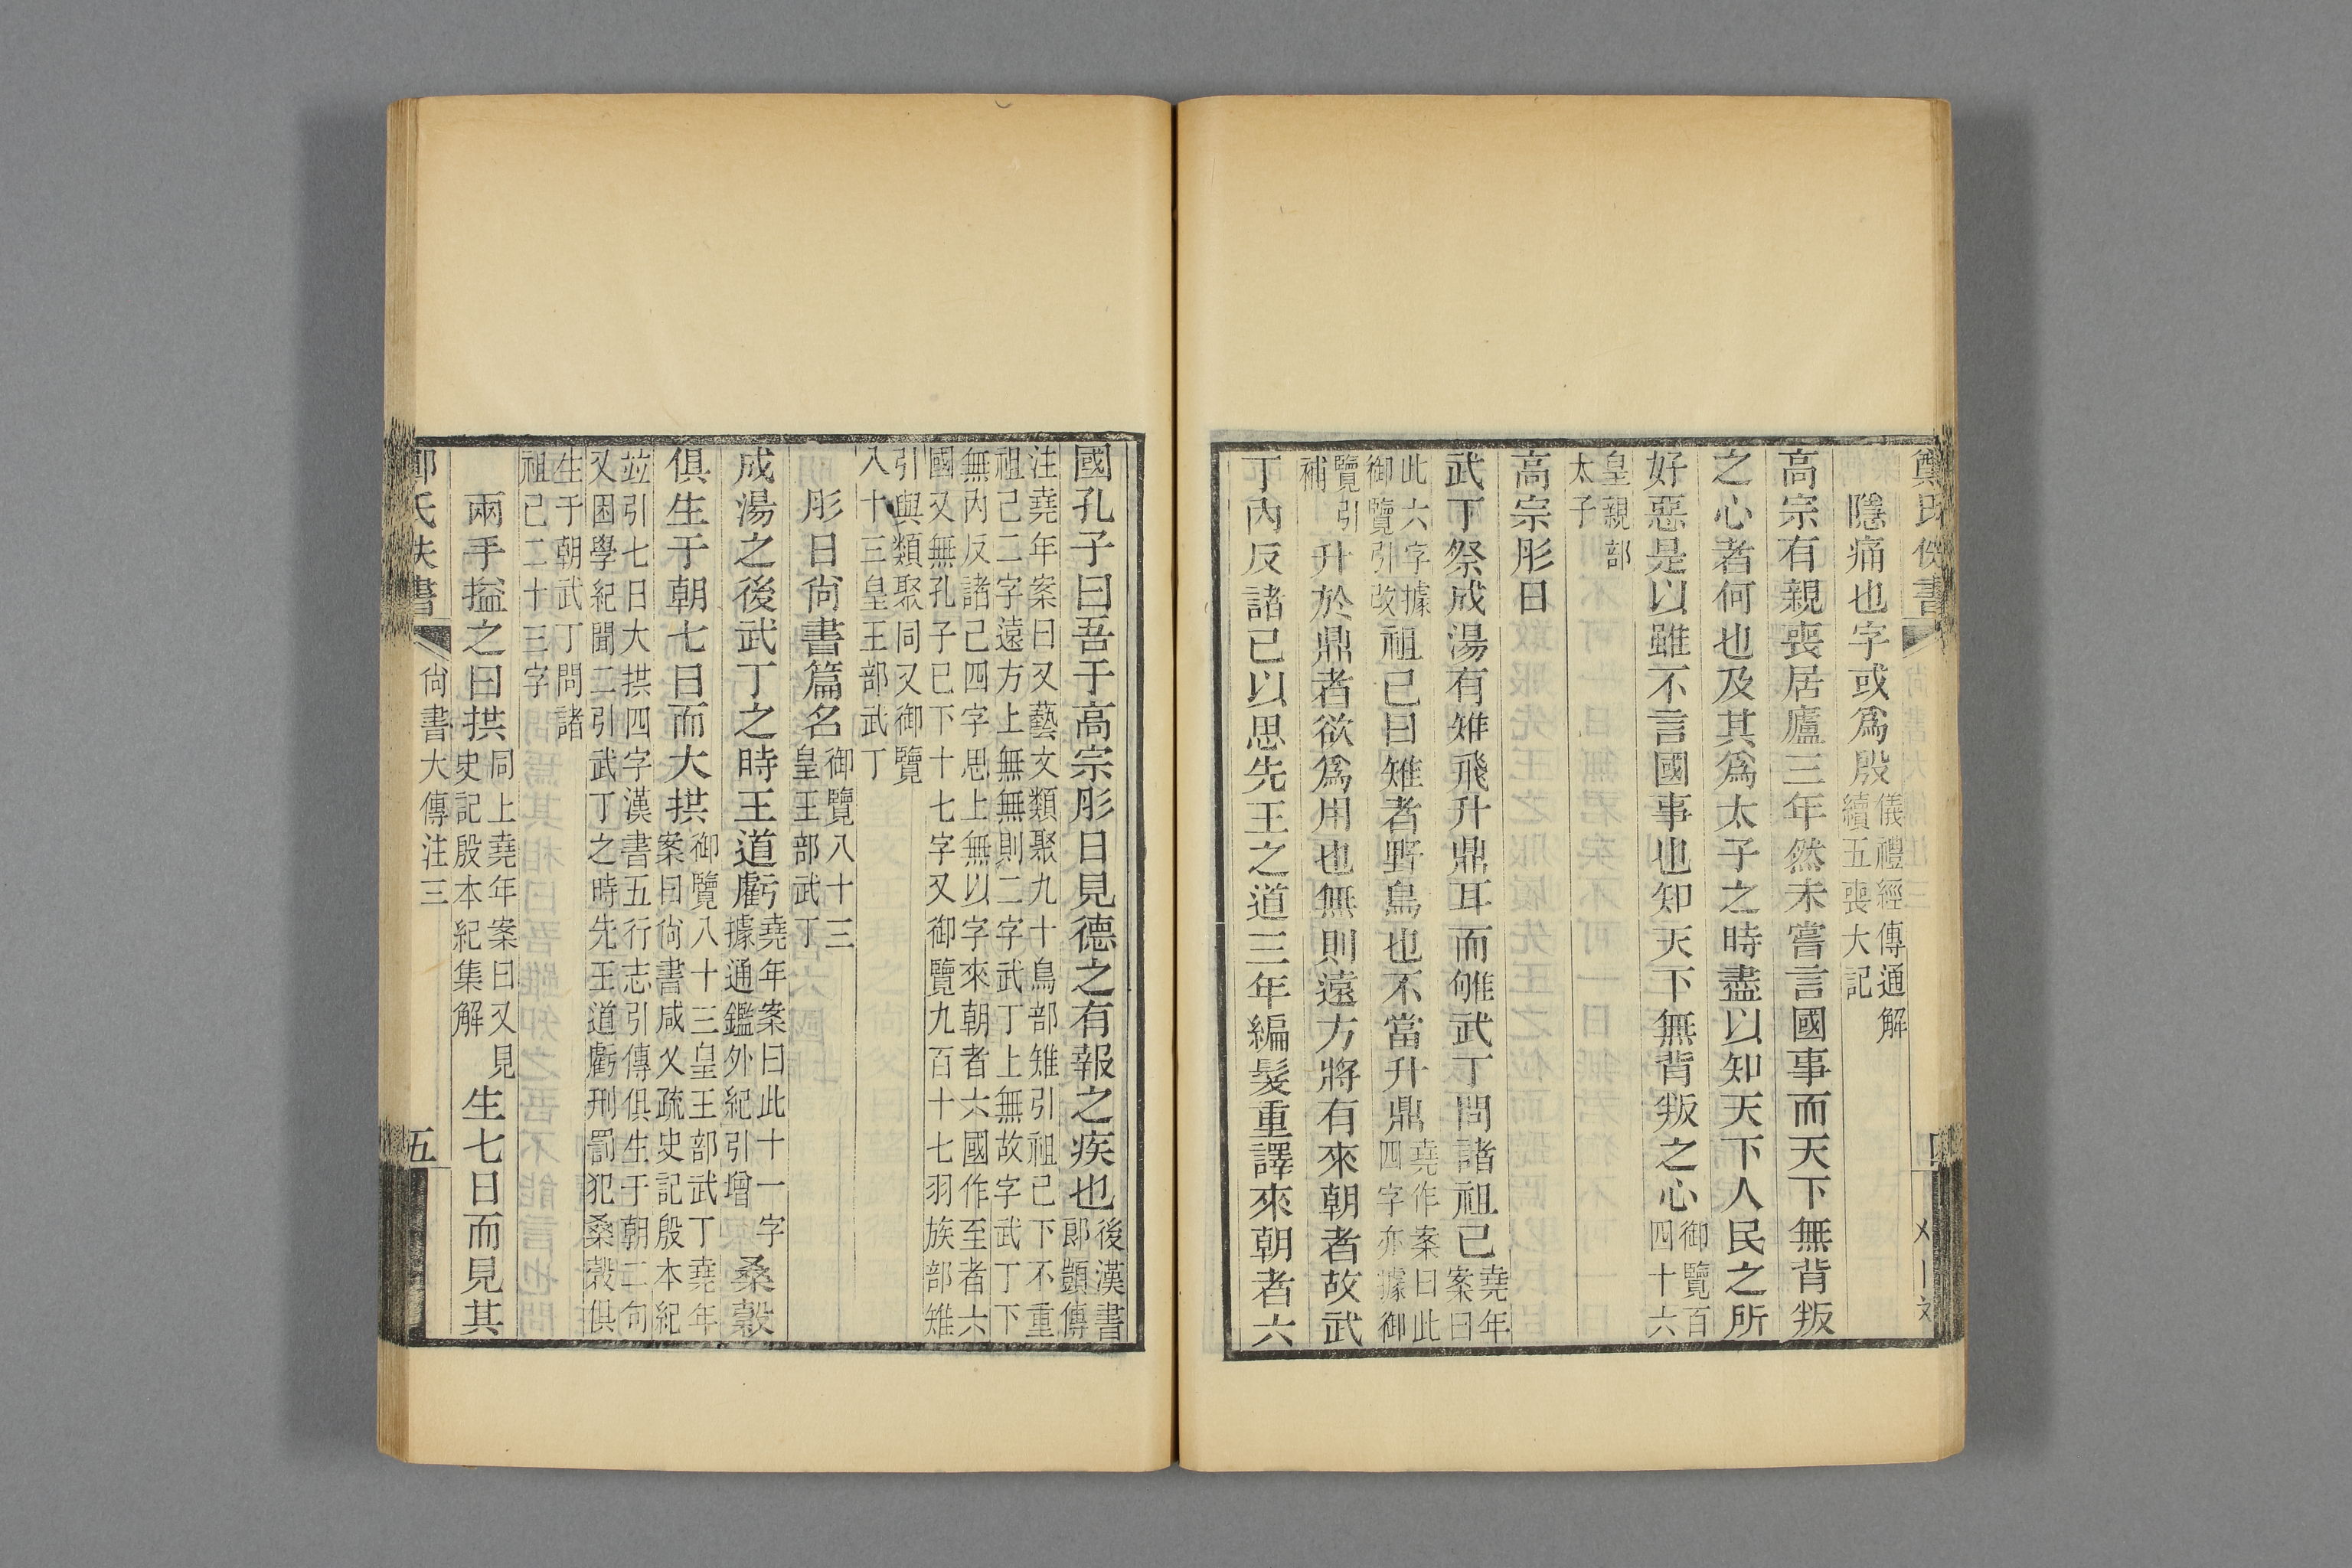 鄭氏佚書
隱痛也字或爲殷儀禮經傳通解
續五喪大記
高宗有親喪居廬三年然未嘗言國事而天下無背叛
之心者何也及其爲太子之時盡以知天下人民之所
好惡是以雖不言國事也知天下無背叛之心御覽百
四十六
皇親部
太子
高宗肜日
武丁祭成湯有雉飛升鼎耳而雊武丁問諸祖己堯年
案曰
此六字據
御覽引改祖己曰雉者野鳥也不當升鼎堯作案曰此
四字亦據御
覽引
補升於鼎者欲爲用也無則遠方將有來朝者故武
丁內反諸己以思先王之道三年編髮重譯來朝者六
國孔子曰吾于高宗肜日見德之有報之疾也後漢書
郎顗傳
注堯年案曰又藝文類聚九十鳥部雉引祖己下不重
祖己二字遠方上無無則二字武丁上無故字武丁下
無內反諸己四字思上無以字來朝者六國作至者六
國又無孔子已下十七字又御覽九百十七羽族部雉
引與類聚同又御覽
八十三皇王部武丁
肜日尙書篇名御覽八十三
皇王部武丁
成湯之後武丁之時王道虧堯年案曰此十一字
據通鑑外紀引增桑穀
俱生于朝七日而大拱御覽八十三皇王部武丁堯年
案曰尙書咸乂疏史記殷本紀
竝引七日大拱四字漢書五行志引傳俱生于朝二句
又困學紀聞二引武丁之時先王道虧刑罰犯桑穀俱
生于朝武丁問諸
祖己二十三字
兩手搤之曰拱同上堯年案曰又見
史記殷本紀集解生七日而見其
鄭氏佚書
尙書大傳注三
五